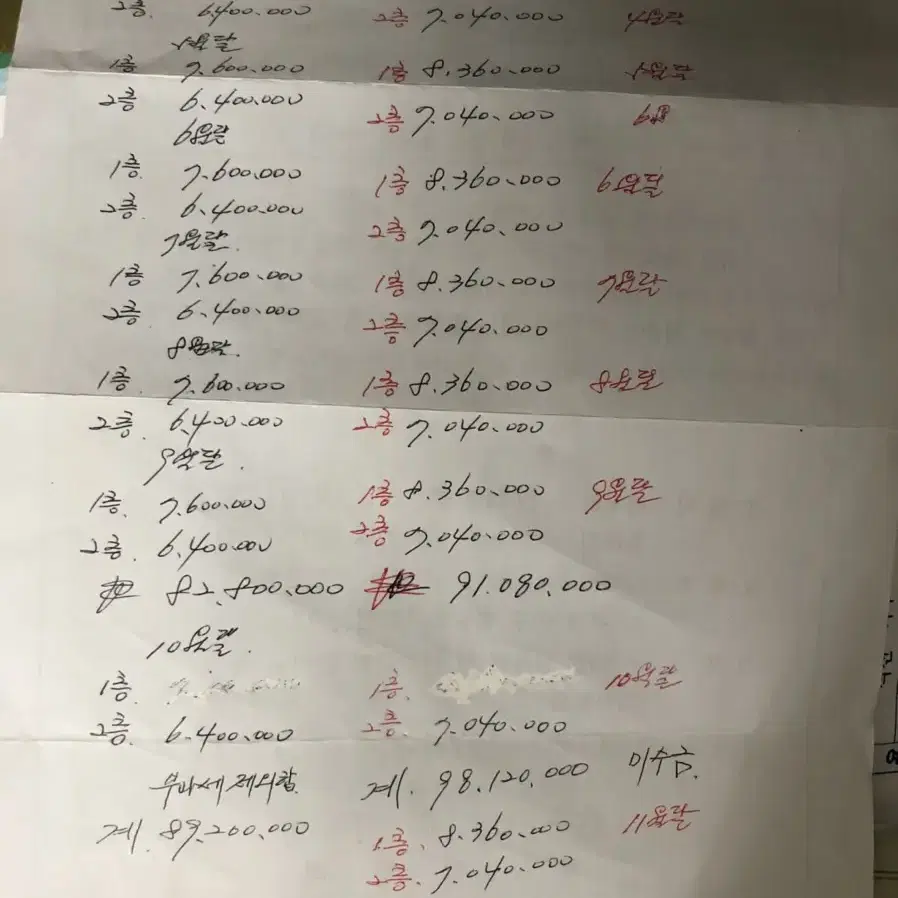 2층. 6.400.000 2층 7.040.000 4월달
5월달
1층 7.600.000 1층 8.360.000 5월달
2층 6.400.000 2층 7.040.000 6월
6월달
1층. 7.600.000 1층 8.360.000 6월달
2층. 6.400.000 2층 7.040.000
7월달.
1층 7.600.000 1층 8.360.000 7월달
2층. 6.400.000 2층 7.040.000
8월달.
1층. 7.600.000 1층 8.360.000 8월달
2층. 6.400.000 2층 7.040.000
9월달.
1층. 7.600.000 1층 8.360.000 9월달
2층. 6.400.000 2층 7.040.000
82.800.000 91.080.000
10월달.
1층. 1층. 10월달
2층. 6.400.000 2층. 7.040.000
부가세 제외함. 계. 98.120.000 미수금.
계. 89.200.000
1층. 8.360.000 11월달
2층. 7.040.000